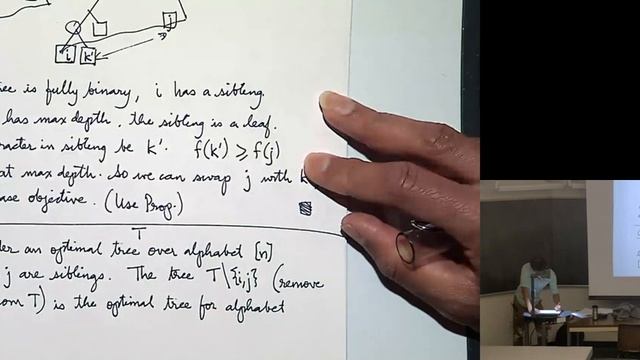 j
i k'
ee is fully binary, i has a sibling.
has max depth, the sibling is a leaf.
racter in sibling be k'. f(k') ⩾ f(j)
at max depth. So we can swap j with k'
ase objective. (Use Prop.)
T
der an optimal tree over alphabet [n]
j are siblings. The tree T\{i,j} (remove
om T) is the optimal tree for alphabet